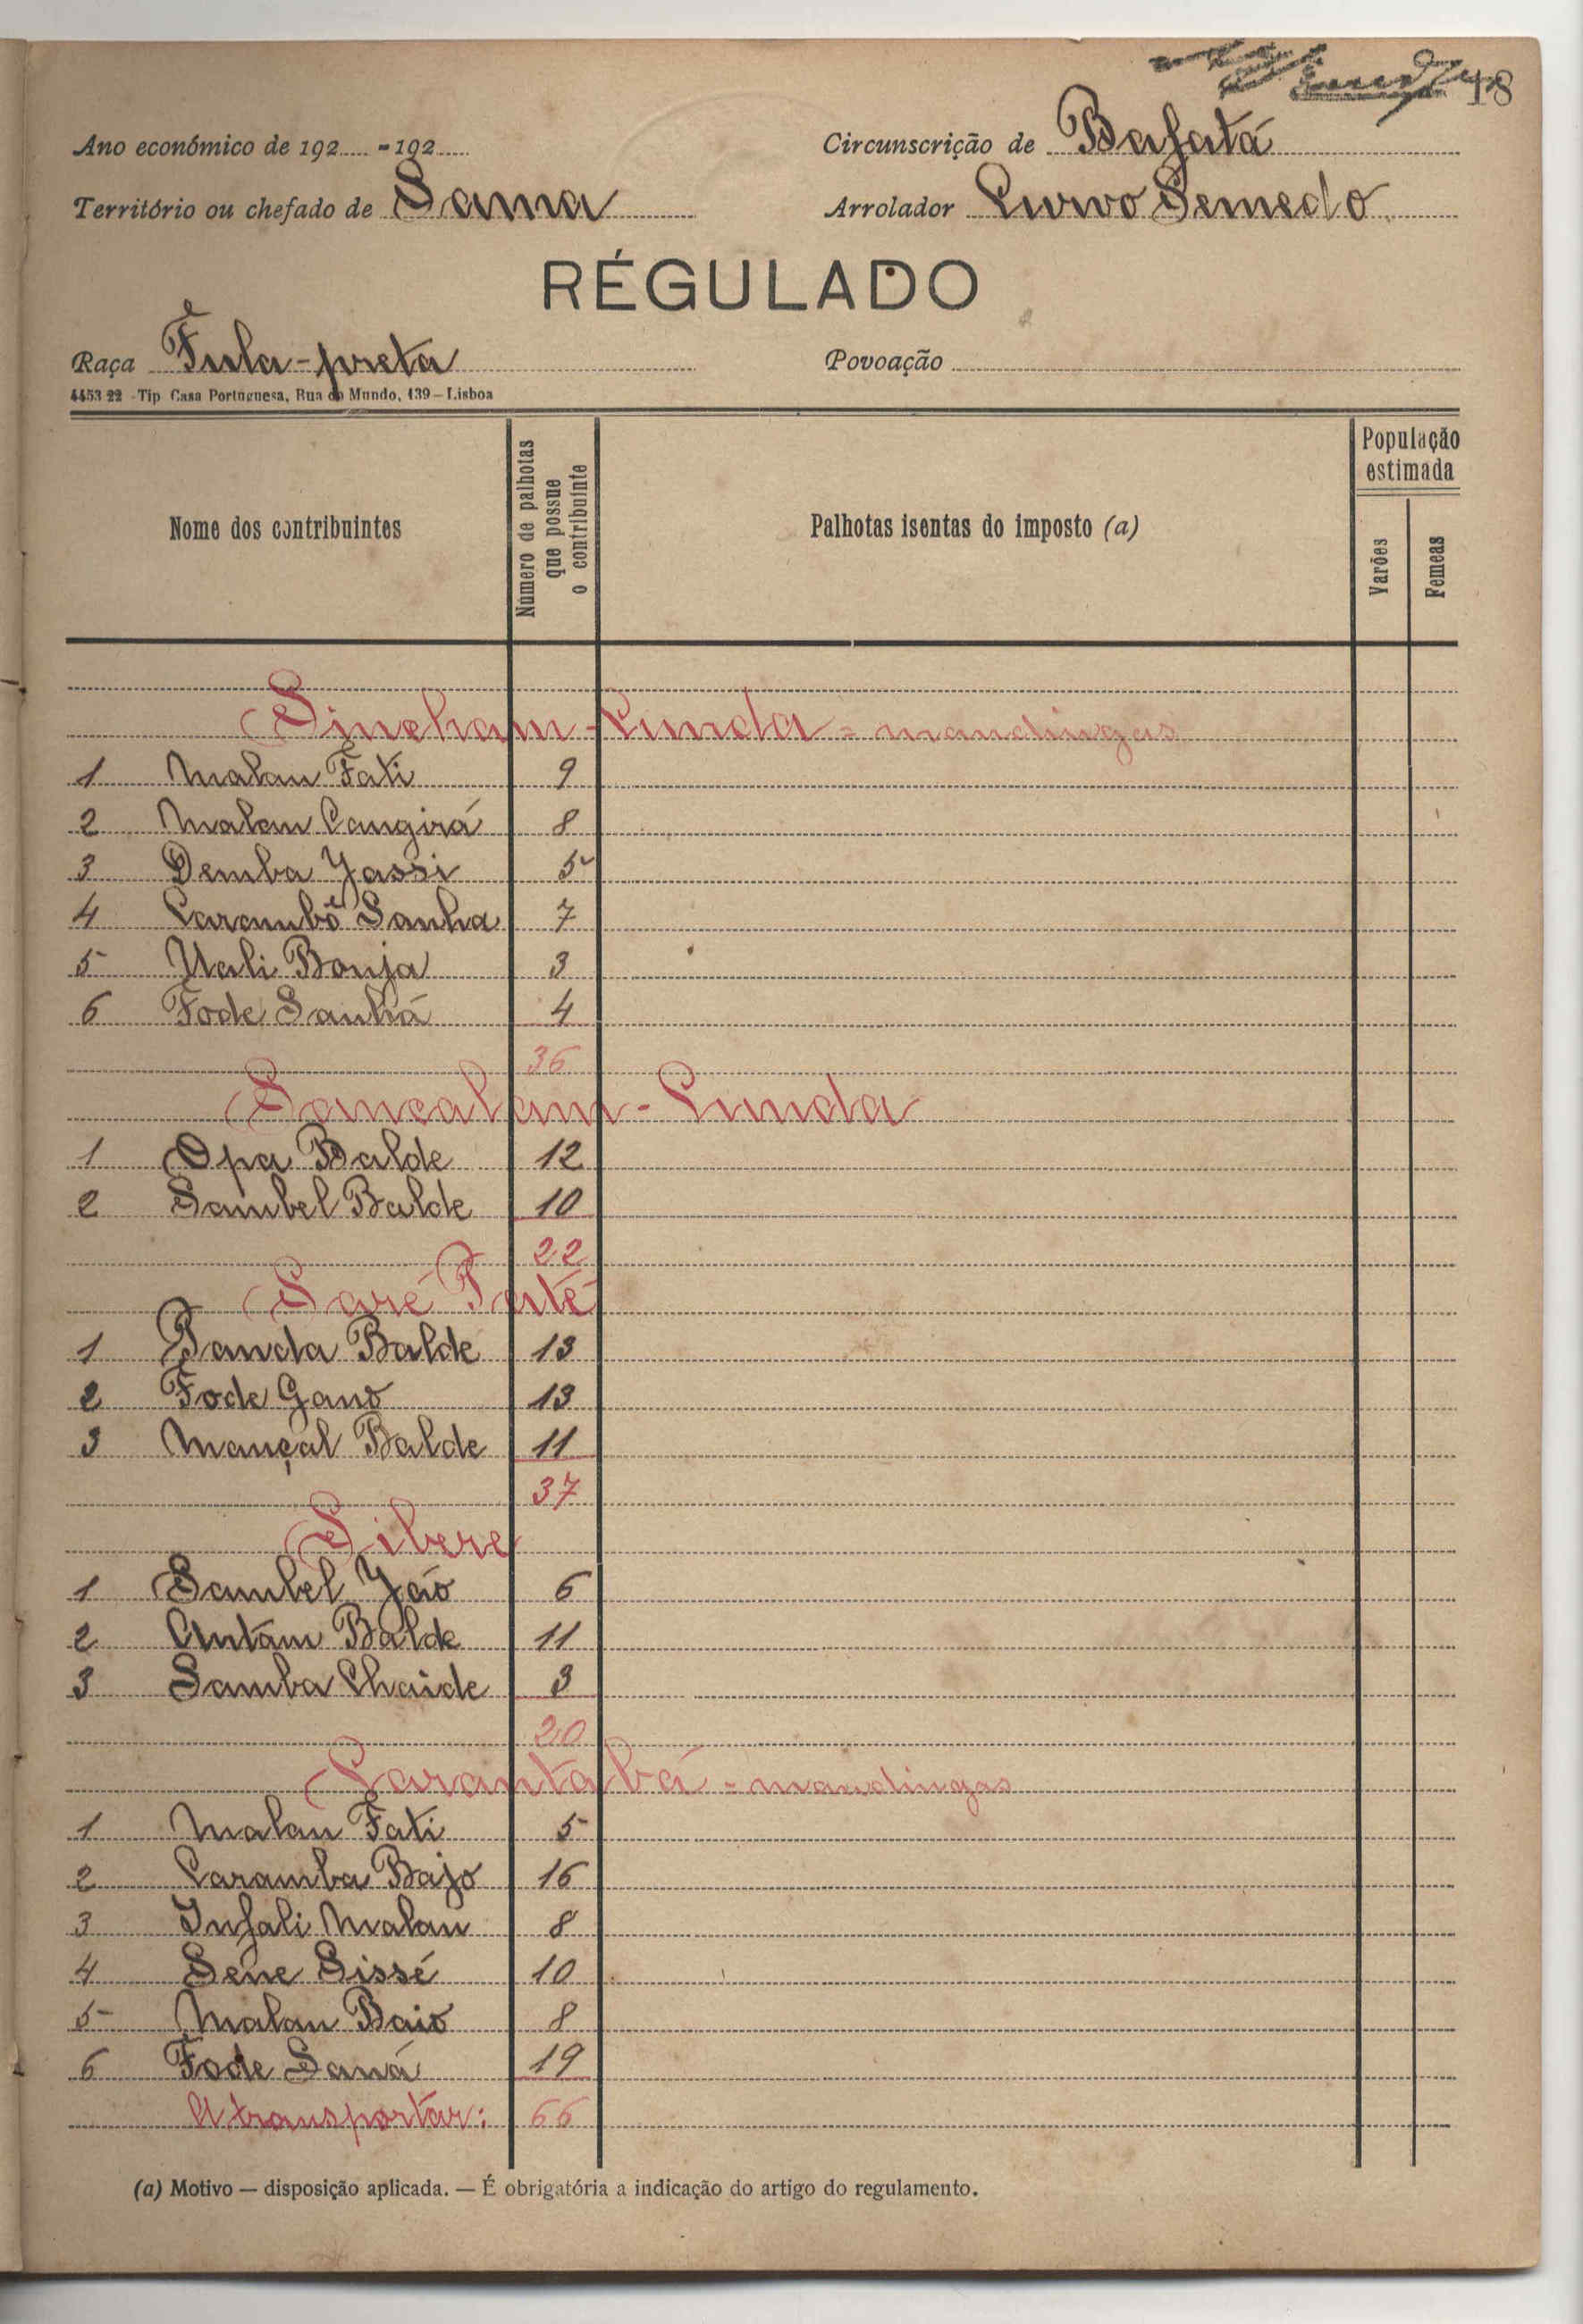 48
Ano económico de 192..... - 192.....
Circunscrição de Bafatá
Território ou chefado de Sama
Arrolador Curvo Semedo
RÉGULADO
Raça Fula-preta
Povoação
4453 22 - Tip Casa Portuguesa, Rua do Mundo, 139 - Lisboa
Nome dos contribuintes
Número de palhotas que possue o contribuinte
Palhotas isentas do imposto (a)
População estimada
Varões
Femeas
Sincham-Cunda = mandingas
1 Malan Fati 9
2 Malan Cangirá 8
3 Demba Jassi 5
4 Carambô Sanha 7
5 Uali Bonja 3
6 Fode Sanhá 4
36
Soncalam-Cunda
1 Opa Balde 12
2 Sambel Balde 10
22
Saré Paté
1 Panda Balde 13
2 Fode Gano 13
3 Mançal Balde 11
37
Sibere
1 Sambel Jáo 6
2 Antam Balde 11
3 Samba Chaide 3
20
Carantabá = mandingas
1 Malan Fati 5
2 Caramba Bajo 16
3 Infali Malan 8
4 Sene Sissé 10
5 Malan Baio 8
6 Fode Saná 19
A transportar: 66
(a) Motivo — disposição aplicada. — É obrigatória a indicação do artigo do regulamento.